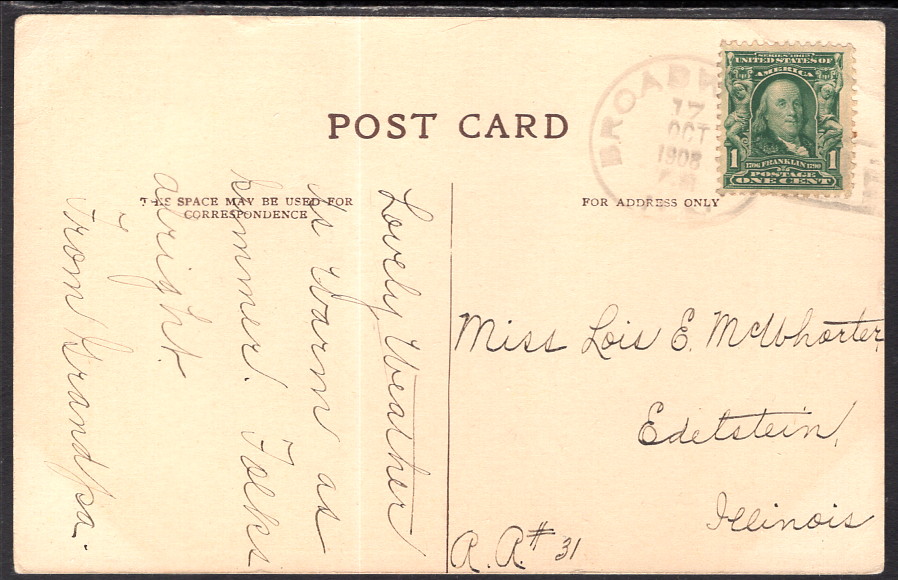 POST CARD
THIS SPACE MAY BE USED FOR
CORRESPONDENCE
FOR ADDRESS ONLY
Lovely Weather
is Warm as
summer. Folks
alright.
From Grandpa.
Miss Lois E. McWhorter
Edelstein,
Illinois
R. R. # 31
17
OCT
1908
SERIES 1902
UNITED STATES OF
AMERICA
1 1
1706 FRANKLIN 1790
POSTAGE
ONE CENT